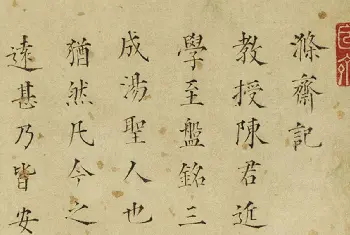 滌齋記
教授陳君近
學至盤銘三
成湯聖人也
猶然凡今之
逺甚乃皆安